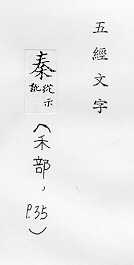 五經文字
秦 從示訛 (禾部, P.35)